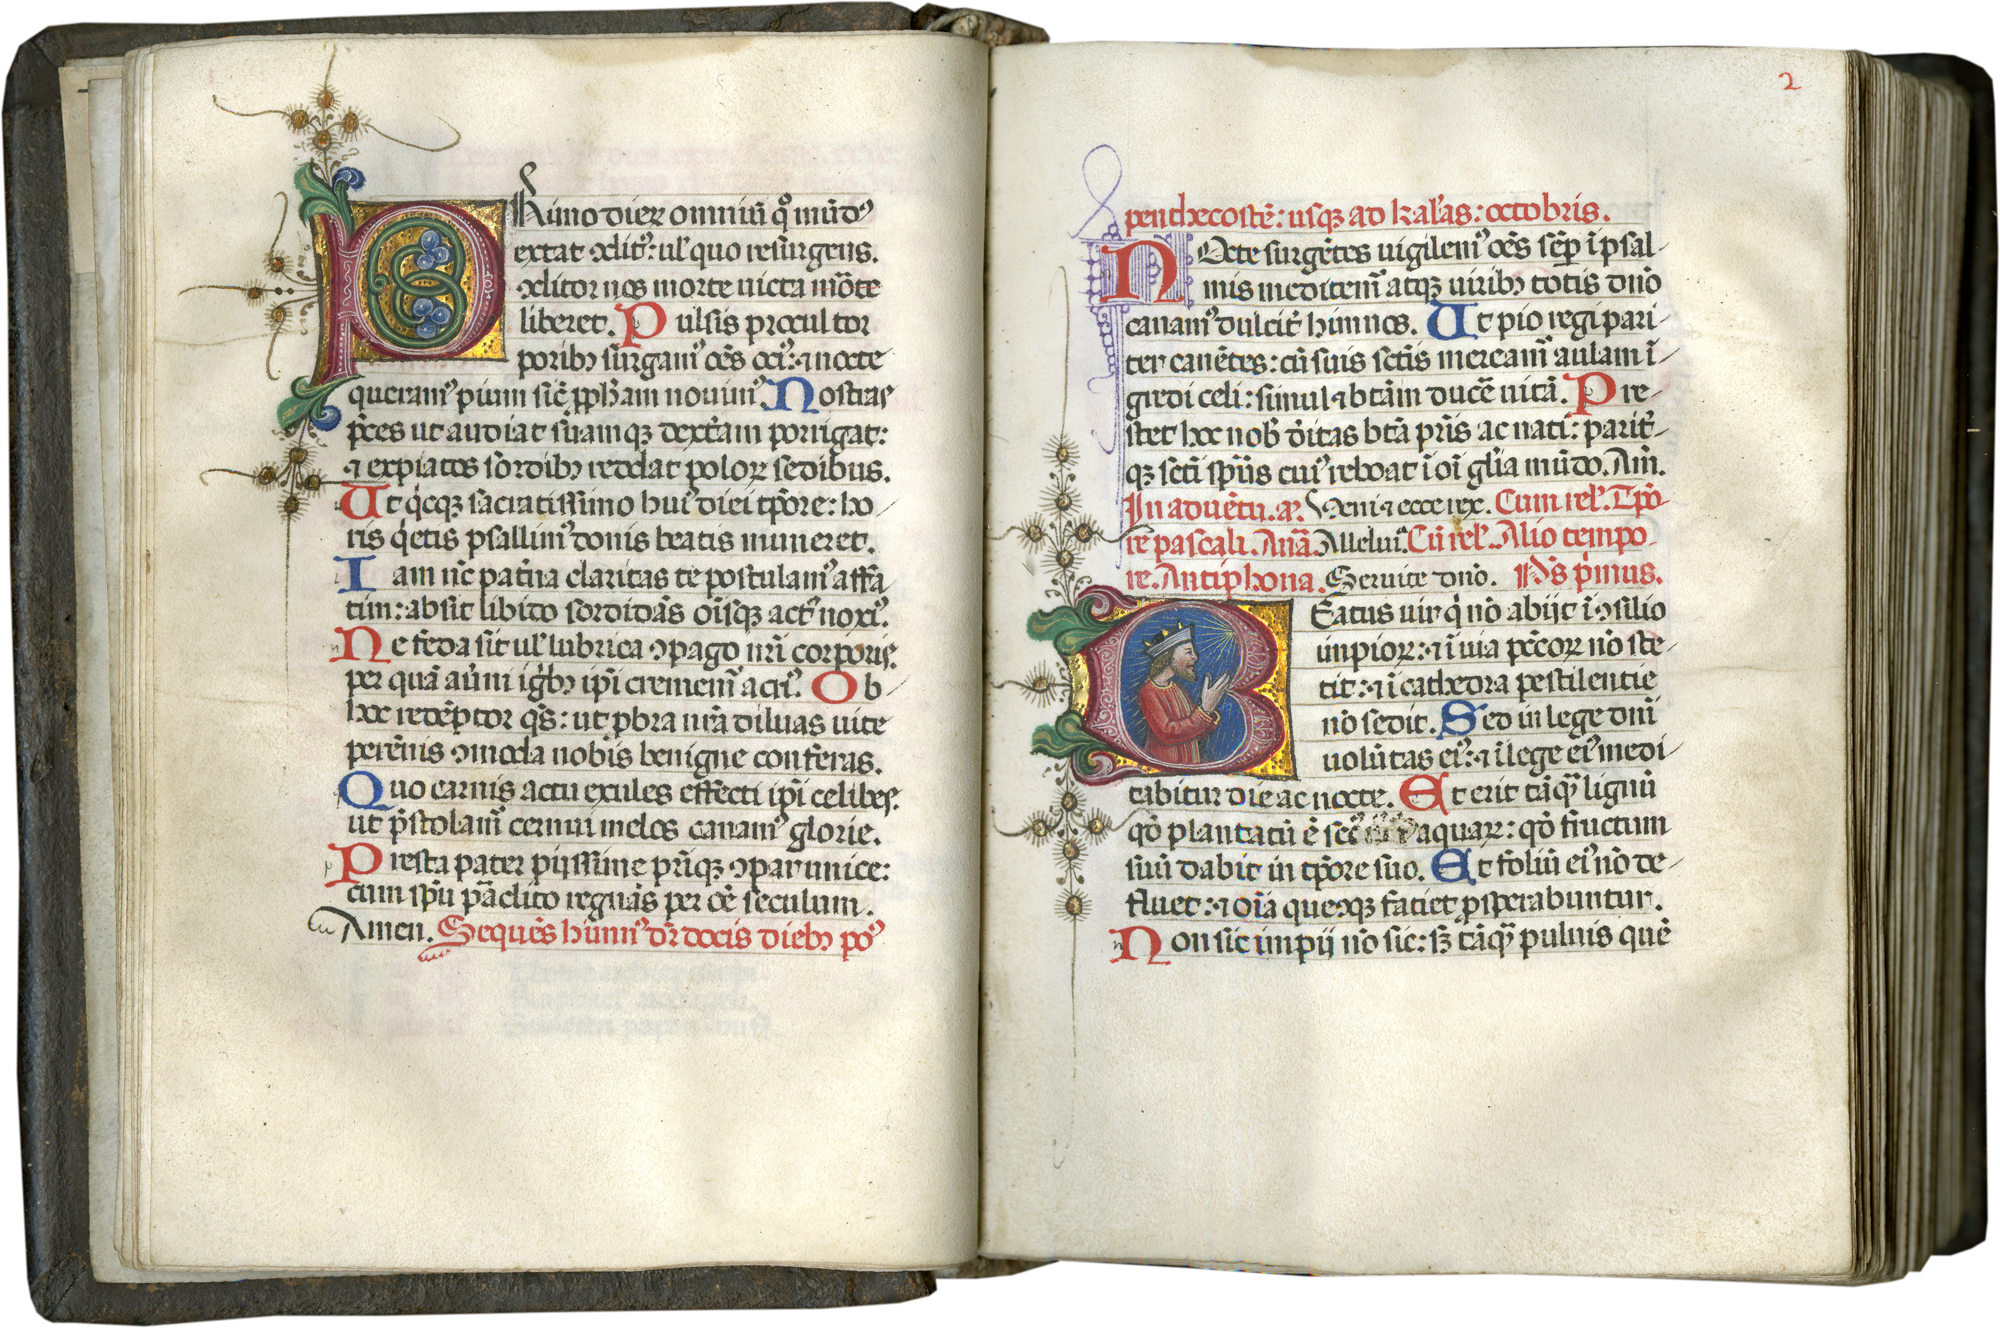 PRimo dieꝝ omniū qͦ mūdꝰ
extat ↄditꝰ: ul' quo resurgens.
ↄditor nos morte uicta mōte
liberet. Pulsis procul tor
poribꝫ surgamꝰ oēs ociꝰ: ⁊ nocte
queramꝰ pium sic̄ ꝓph̄am nouimꝰ. Nostras
p̄ces ut audiat suamqꝫ dext̄am porrigat:
⁊ expiatos sordibꝫ reddat poloꝝ sedibus.
Ut qͥcqꝫ sacratissimo huiꝰ diei tp̄ore: ho
ris qͥetis psallimꝰ donis beatis muneret.
Iam nūc pat̄na claritas te postulamꝰ affa
tim: absit libido sordidās oīsqꝫ actꝰ noxiꝰ.
Ne feda sit ul' lubrica ↄpago nr̄i corporis.
per quā au̓ni igͥbꝫ ip̄i crememꝰ acriꝰ. Ob
hoc redēptor qs̄: ut ꝓbra nr̄a diluas uite
perēnis ↄmoda nobis benigne conferas.
Quo carnis actu exules effecti ip̄i celibes.
ut p̄stolamꝰ cernui melos canamꝰ glorie.
Presta pater pijssime pr̄iqꝫ ↄpar unice:
cum sp̄u pa̅clito regnās per oē seculum.
Amen. Sequēs himnꝰ dr̄ docis diebꝫ poꝰ
2
penthecostē: usqꝫ ad kal'as: octobris.
NOcte surgētes uigilemꝰ oēs sēp ī psal
mis meditemꝰ atqꝫ uiribꝫ totis dn̄o
canamꝰ dulcit̓ himnos. Ut pio regi pari
ter canētes: cū suis sc̄tis mereamꝰ aulam ī
gredi celi: simul ⁊ btām ducē uitā. Pre
stet hoc nob̓ d̓itas btā pr̄is ac nati: parit̓
qꝫ sc̄ti sp̄us cuiꝰ reboat ī oī gl̓ia mūdo. Am̄.
In aduētu. a᷒. Veni ⁊ ecce rex. Cum rel'. Tp̄o
re pascali. Anā. Alleluiꝰ. Cū rel'. Alio tempo
re. Antiphona. Seruite dn̄o. Ps p̄mus.
BEatus uir qͥ nō abijt ī ↄsilio
impioꝝ: ⁊ ī uia pc̄coꝝ nō ste
tit: ⁊ ī cathedra pestilentie
nō sedit. Sed in lege dn̄i
uolūtas eiꝰ: ⁊ ī lege eiꝰ medi
tabitur die ac nocte. Et erit tāqͣ lignū
qḋ plantatū ē sec̓ aquaꝝ: qḋ fructum
suū dabit in tp̄ore suo. Et foliū eiꝰ nō de
fluet: ⁊ oīa quecqꝫ faciet ꝓsperabuntur.
Non sic impij nō sic: sꝫ tāqͣ puluis quē